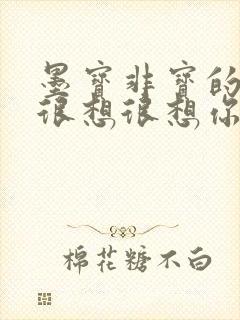 墨宝非宝的
很想很想你
棉花糖不白